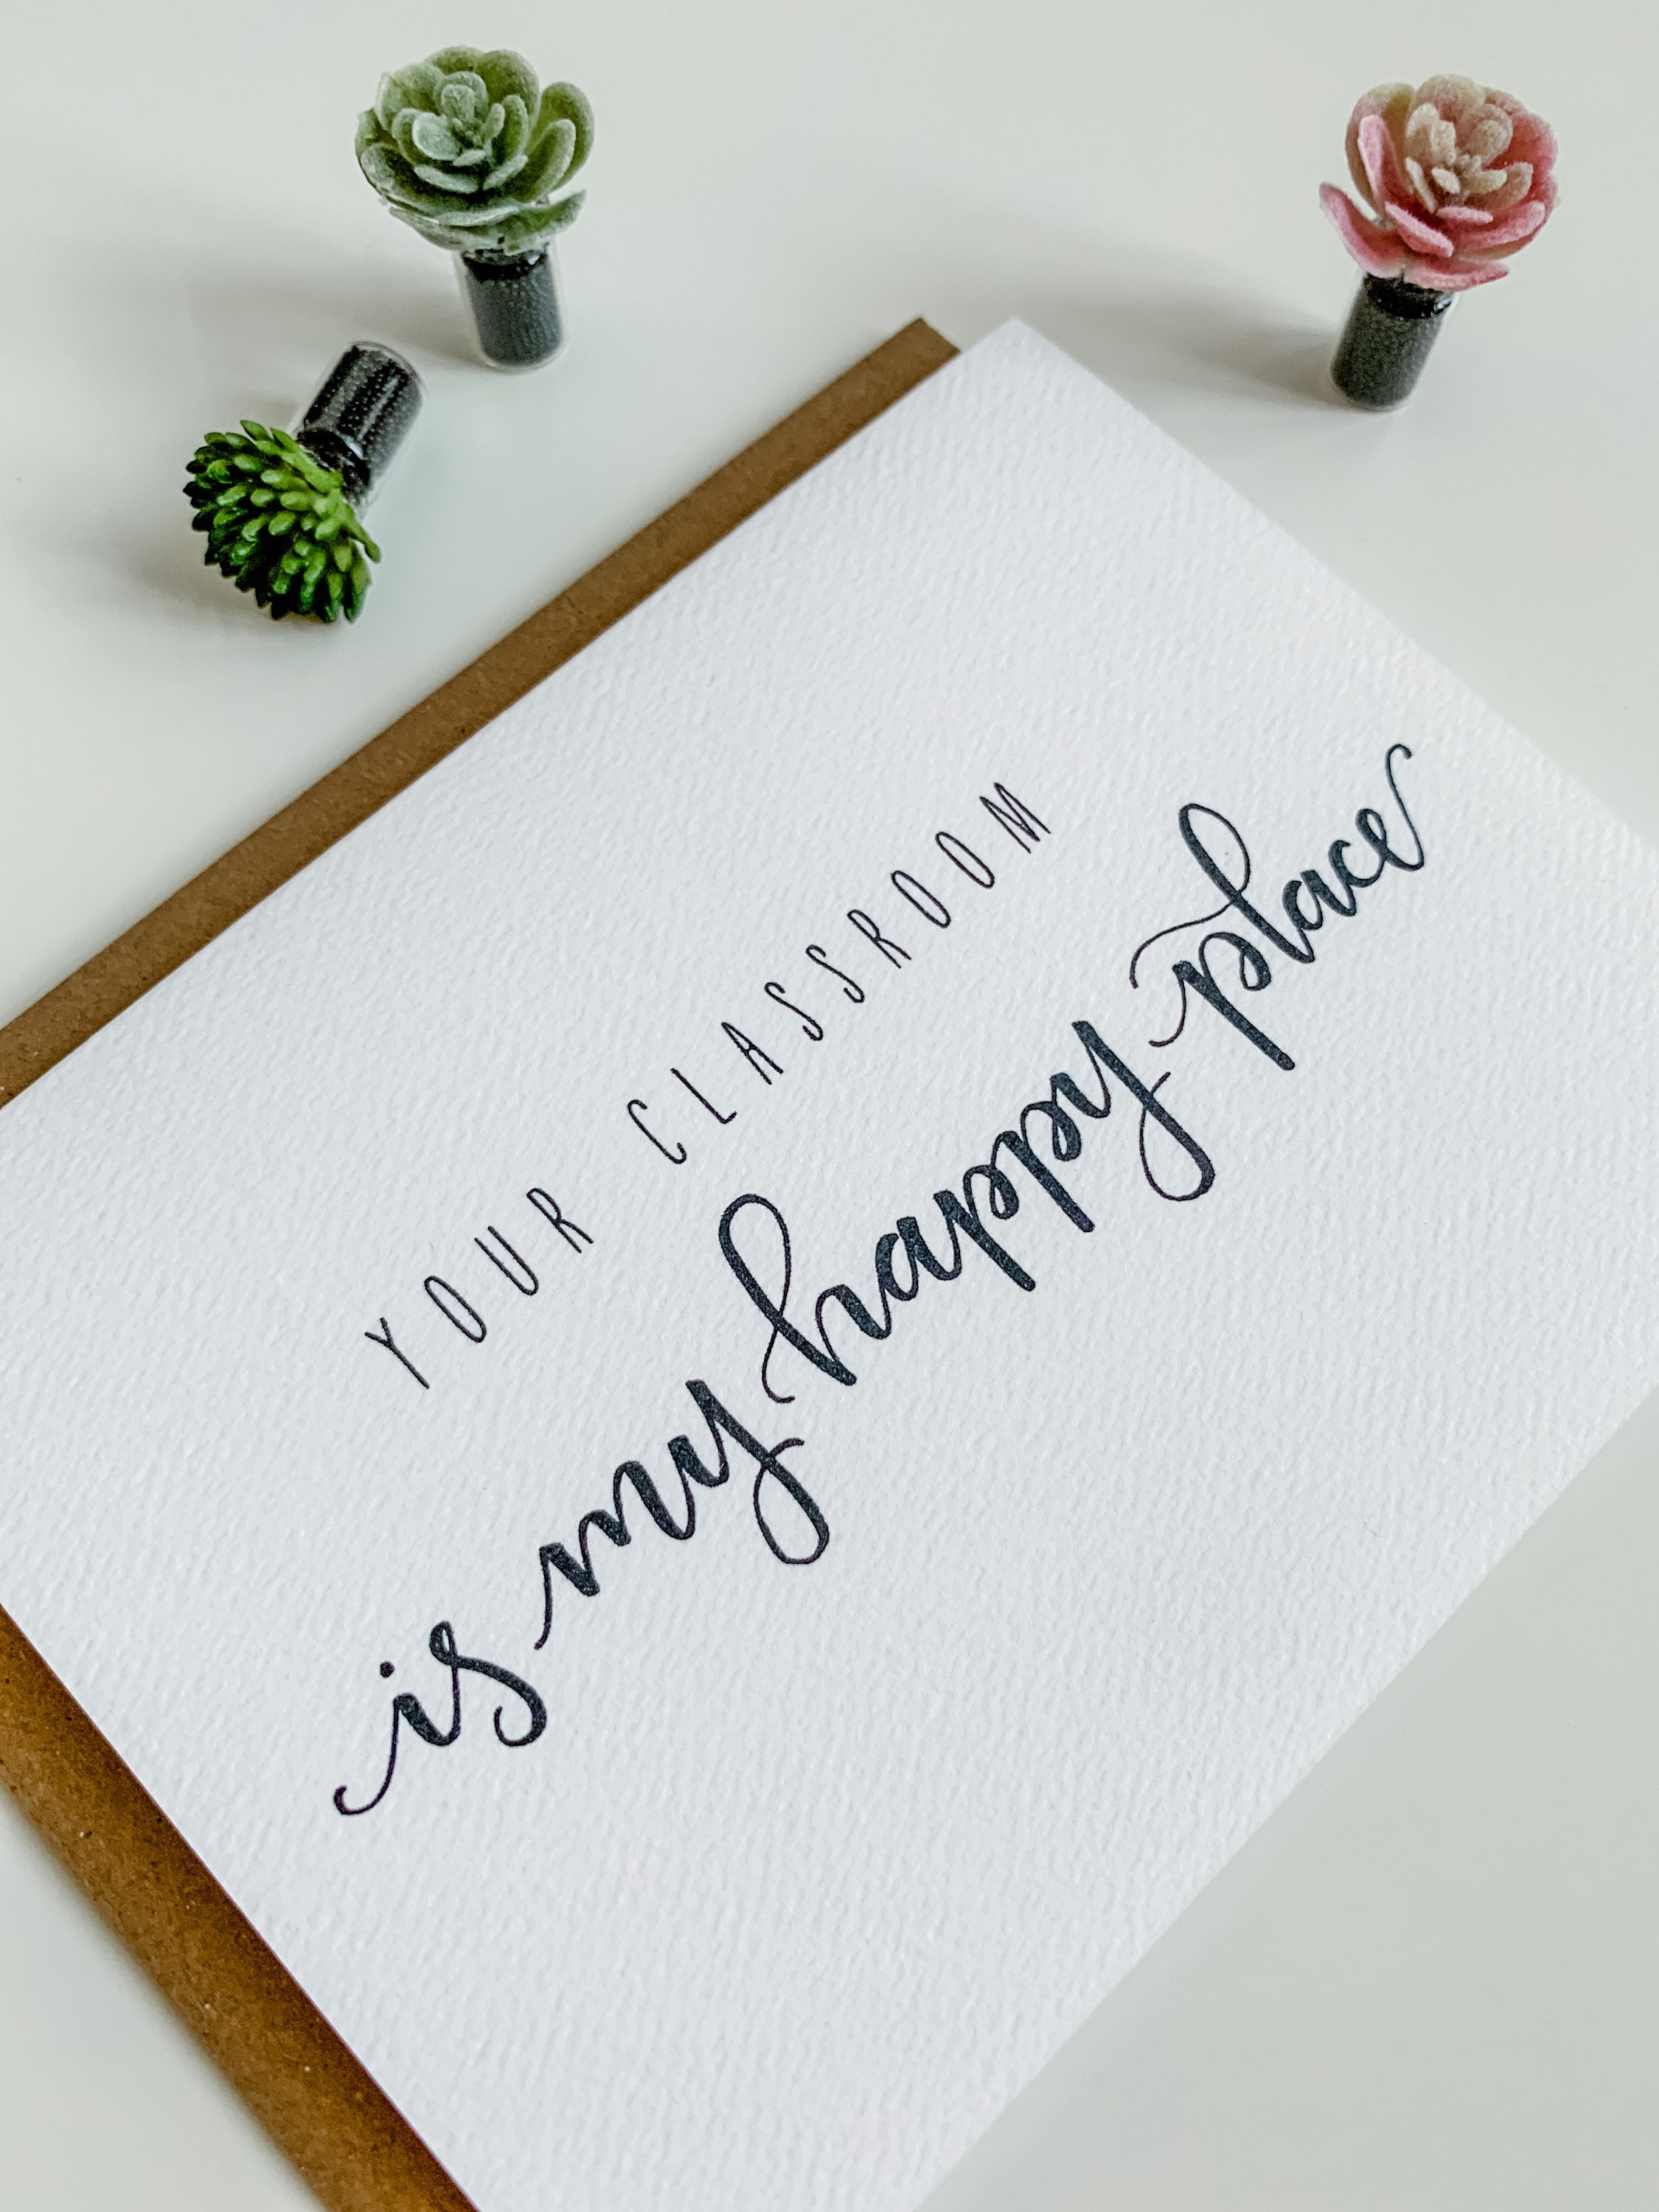 YOUR CLASSROOM
is my happy place